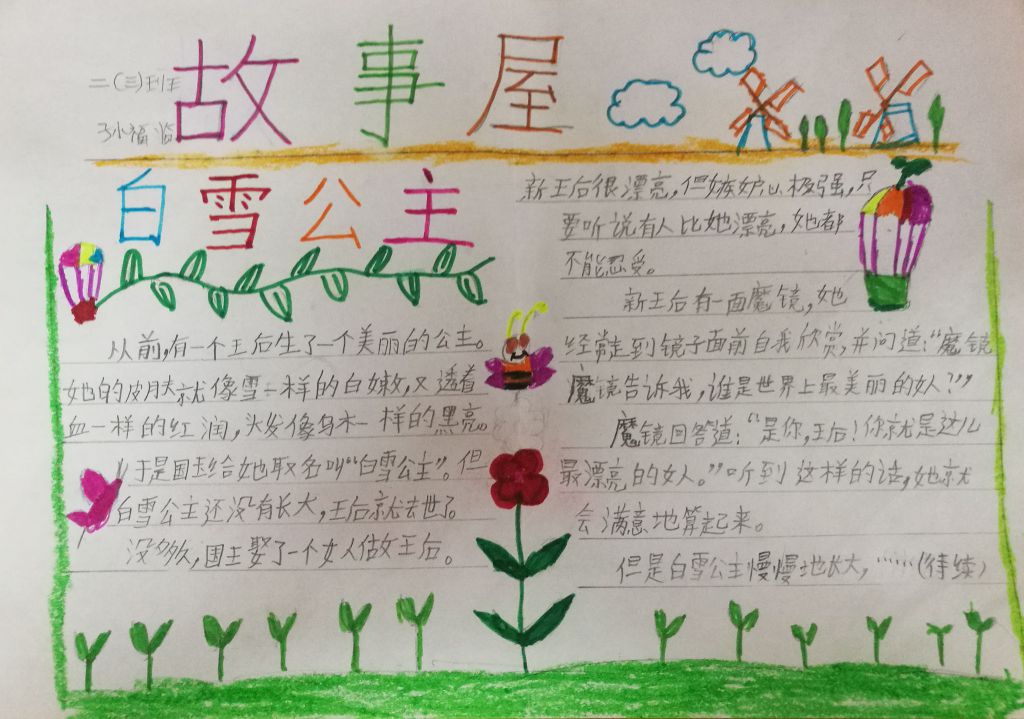 故事屋
二(三)班王
子小福 临
白雪公主
从前,有一个王后生了一个美丽的公主。
她的皮肤就像雪一样的白嫩,又透着
血一样的红润,头发像乌木一样的黑亮。
于是国王给她取名叫“白雪公主”。但
白雪公主还没有长大,王后就去世了。
没多久,国王娶了一个女人做王后。
新王后很漂亮,但嫉妒心极强,只
要听说有人比她漂亮,她都
不能忍受。
新王后有一面魔镜,她
经常走到镜子面前自我欣赏,并问道:“魔镜
魔镜告诉我,谁是世界上最美丽的女人?”
魔镜回答道:“是你,王后!你就是这儿
最漂亮的女人。”听到这样的话,她就
会满意地算起来。
但是白雪公主慢慢地长大,……(待续)